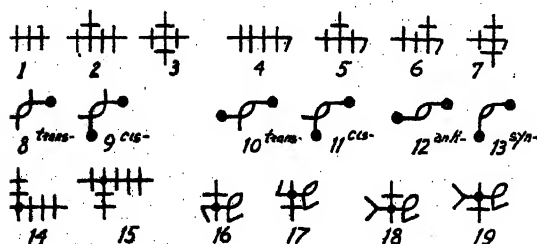 1 2 3 4 5 6 7
8 trans- 9 cis- 10 trans- 11 cis- 12 anti- 13 syn-
14 15 16 17 18 19